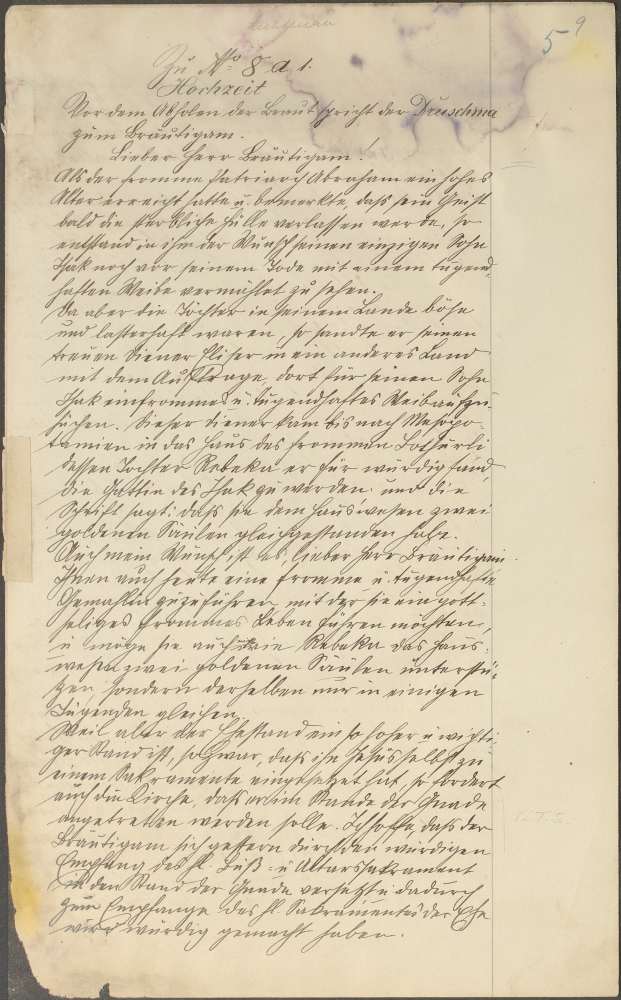 5 9
Zu No 8 A 1.
Hochzeit
Vor dem Abholen der Braut spricht der Druschma
zum Bräutigam.
Lieber Herr Bräutigam!
Als der fromme Patriarch Abraham ein hohes
Alter erreicht hatte u. bemerkte, daß sein Geist
bald die sterbliche Hülle verlassen werde, so
entstand in ihm der Wunsch seinen einzigen Sohn
Isak noch vor seinem Tode mit einem tugend-
haften Weibe vermählet zu sehen.
Da aber die Töchter in seinem Lande böse
und lasterhaft waren, so sandte er seinen
treuen Diener Elieser in ein anderes Land
mit dem Auftrage, dort für seinen Sohn
Isak ein frommes u. tugendhaftes Weib aufzu-
suchen. Dieser Diener kam bis nach Mesopo-
tamien in das Haus des frommen
dessen Tochter Rebeka er für würdig fand,
die Gattin des Isak zu werden und die
Schrift sagt: daß sie dem Hauswesen zwei
goldenen Säulen gleichgestanden habe.
Auch mein Wunsch ist es, lieber Herr Bräutigam
Ihnen auch heute eine fromme u. tugendhafte
Gemahlin zuzuführen, mit der sie ein gott-
seliges frommes Leben führen möchten,
u möge sie auch wie Rebeka das Haus-
wesen zwei goldenen Säulen unterstü-
tzen sondern derselben nur in einigen
Tugenden gleichen.
Weil aber der Ehestand ein so hoher u wichti-
ger Stand ist, so zwar, daß ihn Jesus selbst zu
einem Sakramente eingesetzet hat, so fordert
auch die Kirche, daß er im Stande der Gnade
angetreten werden solle. Ich hoffe, daß der
Bräutigam sich gestern durch den würdigen
Empfang des hl. Buß- u Altarssakrament
in den Stand der Gnade versetzt u dadurch
zum Empfange des hl Sakramentes der Ehe
würdig gemacht haben.